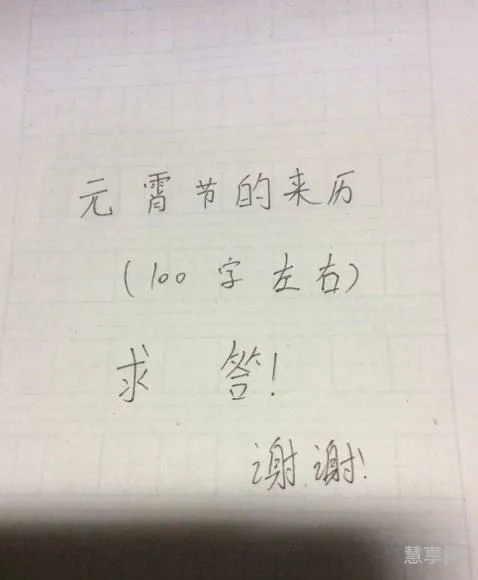 元宵节的来历
(100字左右)
求 答!
谢谢!
慧享